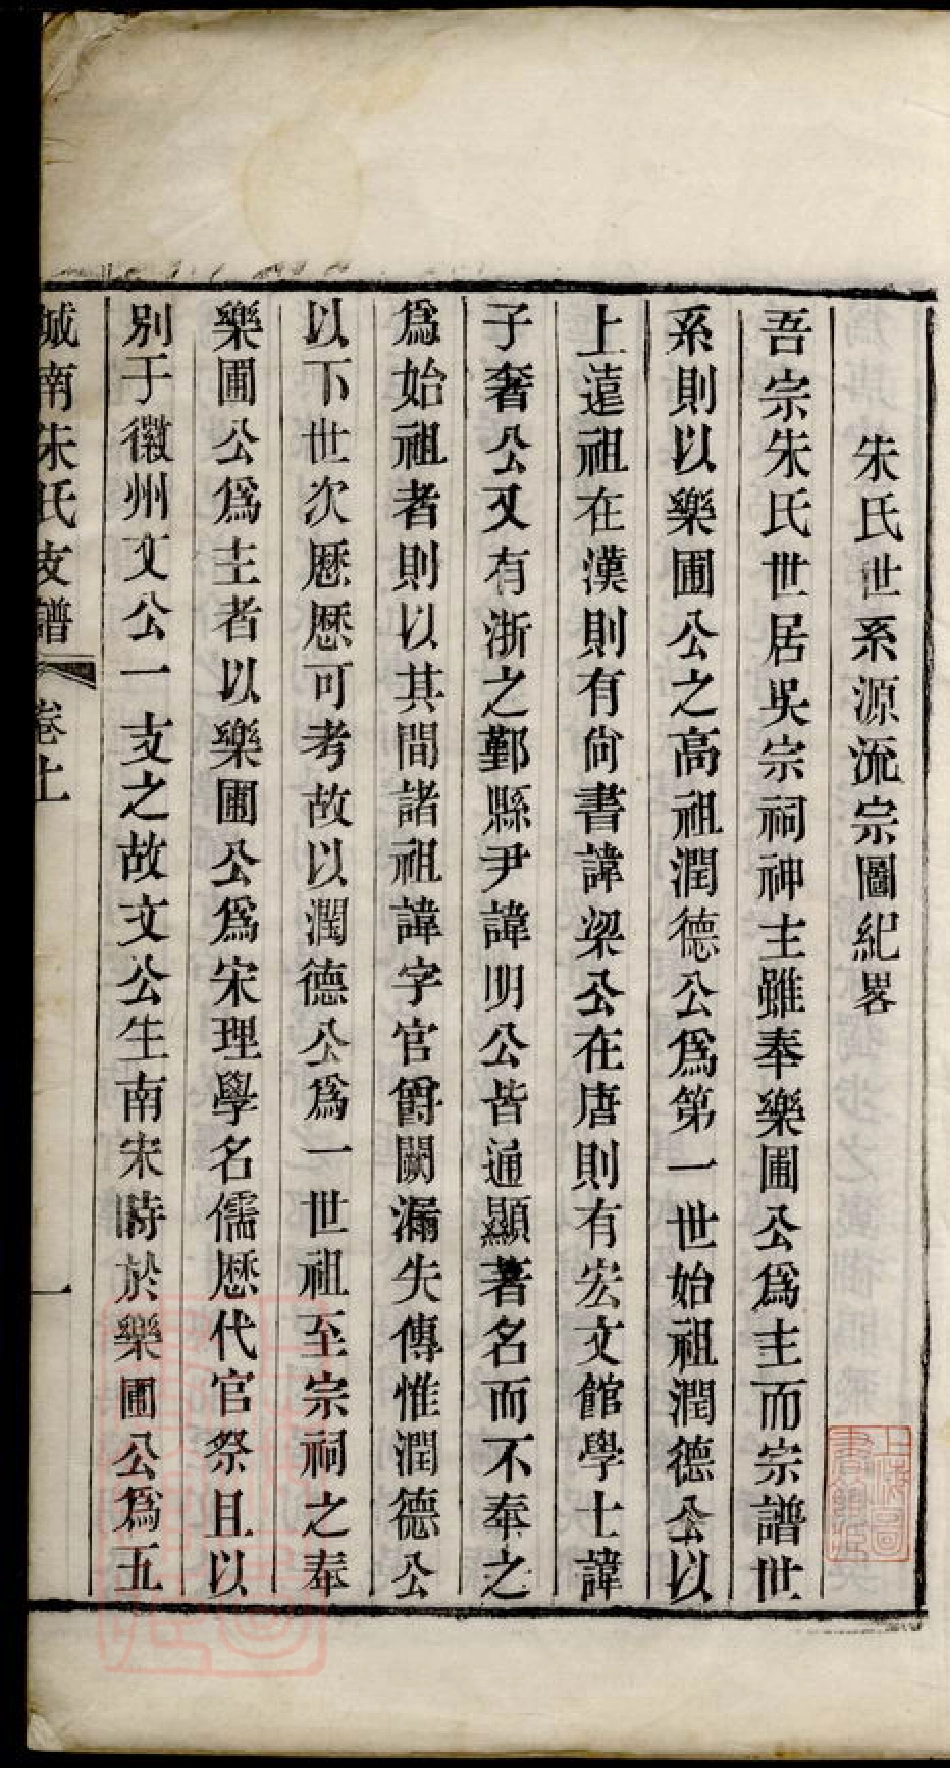 朱氏世系源流宗圖紀畧
吾宗朱氏世居吳宗祠神主雖奉樂圃公爲主而宗譜世
系則以樂圃公之高祖潤德公爲第一世始祖潤德公以
上遠祖在漢則有尙書諱梁公在唐則有宏文館學士諱
子奢公又有浙之鄞縣尹諱明公皆通顯著名而不奉之
爲始祖者則以其間諸祖諱字官爵闕漏失傳惟潤德公
以下世次厯厯可考故以潤德公爲一世祖至宗祠之奉
樂圃公爲主者以樂圃公爲宋理學名儒厯代官祭且以
別于徽州文公一支之故文公生南宋時於樂圃公爲五
城南朱氏支譜 卷上 一
上海圖書館藏